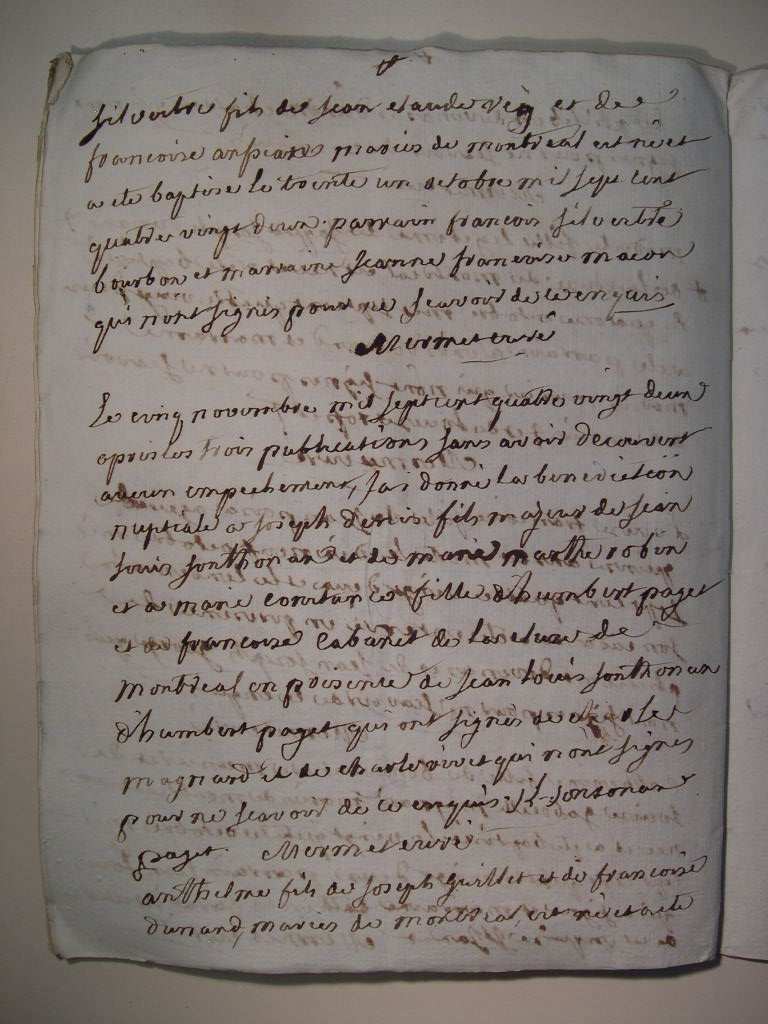 silvestre fils de jean claude rey et de
francoise mariés de montreal est né et
a été baptise le trente un octobre mil sept cent
quatre vingt deux. parrain francois silvestre
bourbon et marraine jeanne francoise macon
qui n'ont signés pour ne scavoir de ce enquis
Mermet curé
Le cinq novembre mil sept cent quatre vingt deux
apres les trois publications sans avoir decouvert
aucun empechement, J'ai donné la benediction
nuptiale a joseph denis fils majeur de jean
louis sonthonax et de marie marthe robin
et a marie constance fille d'humbert paget
et de francoise cabanet de la cluse de
montreal en presence de jean louis sonthonax
d'humbert paget qui ont signés de
magnard et de charle vivet qui n'ont signés
pour ne scavoir de ce enquis. J L Sontonax
paget. Mermet curé
anthelme fils de joseph guillet et de francoise
dunand, mariés de montreal, est né et a été